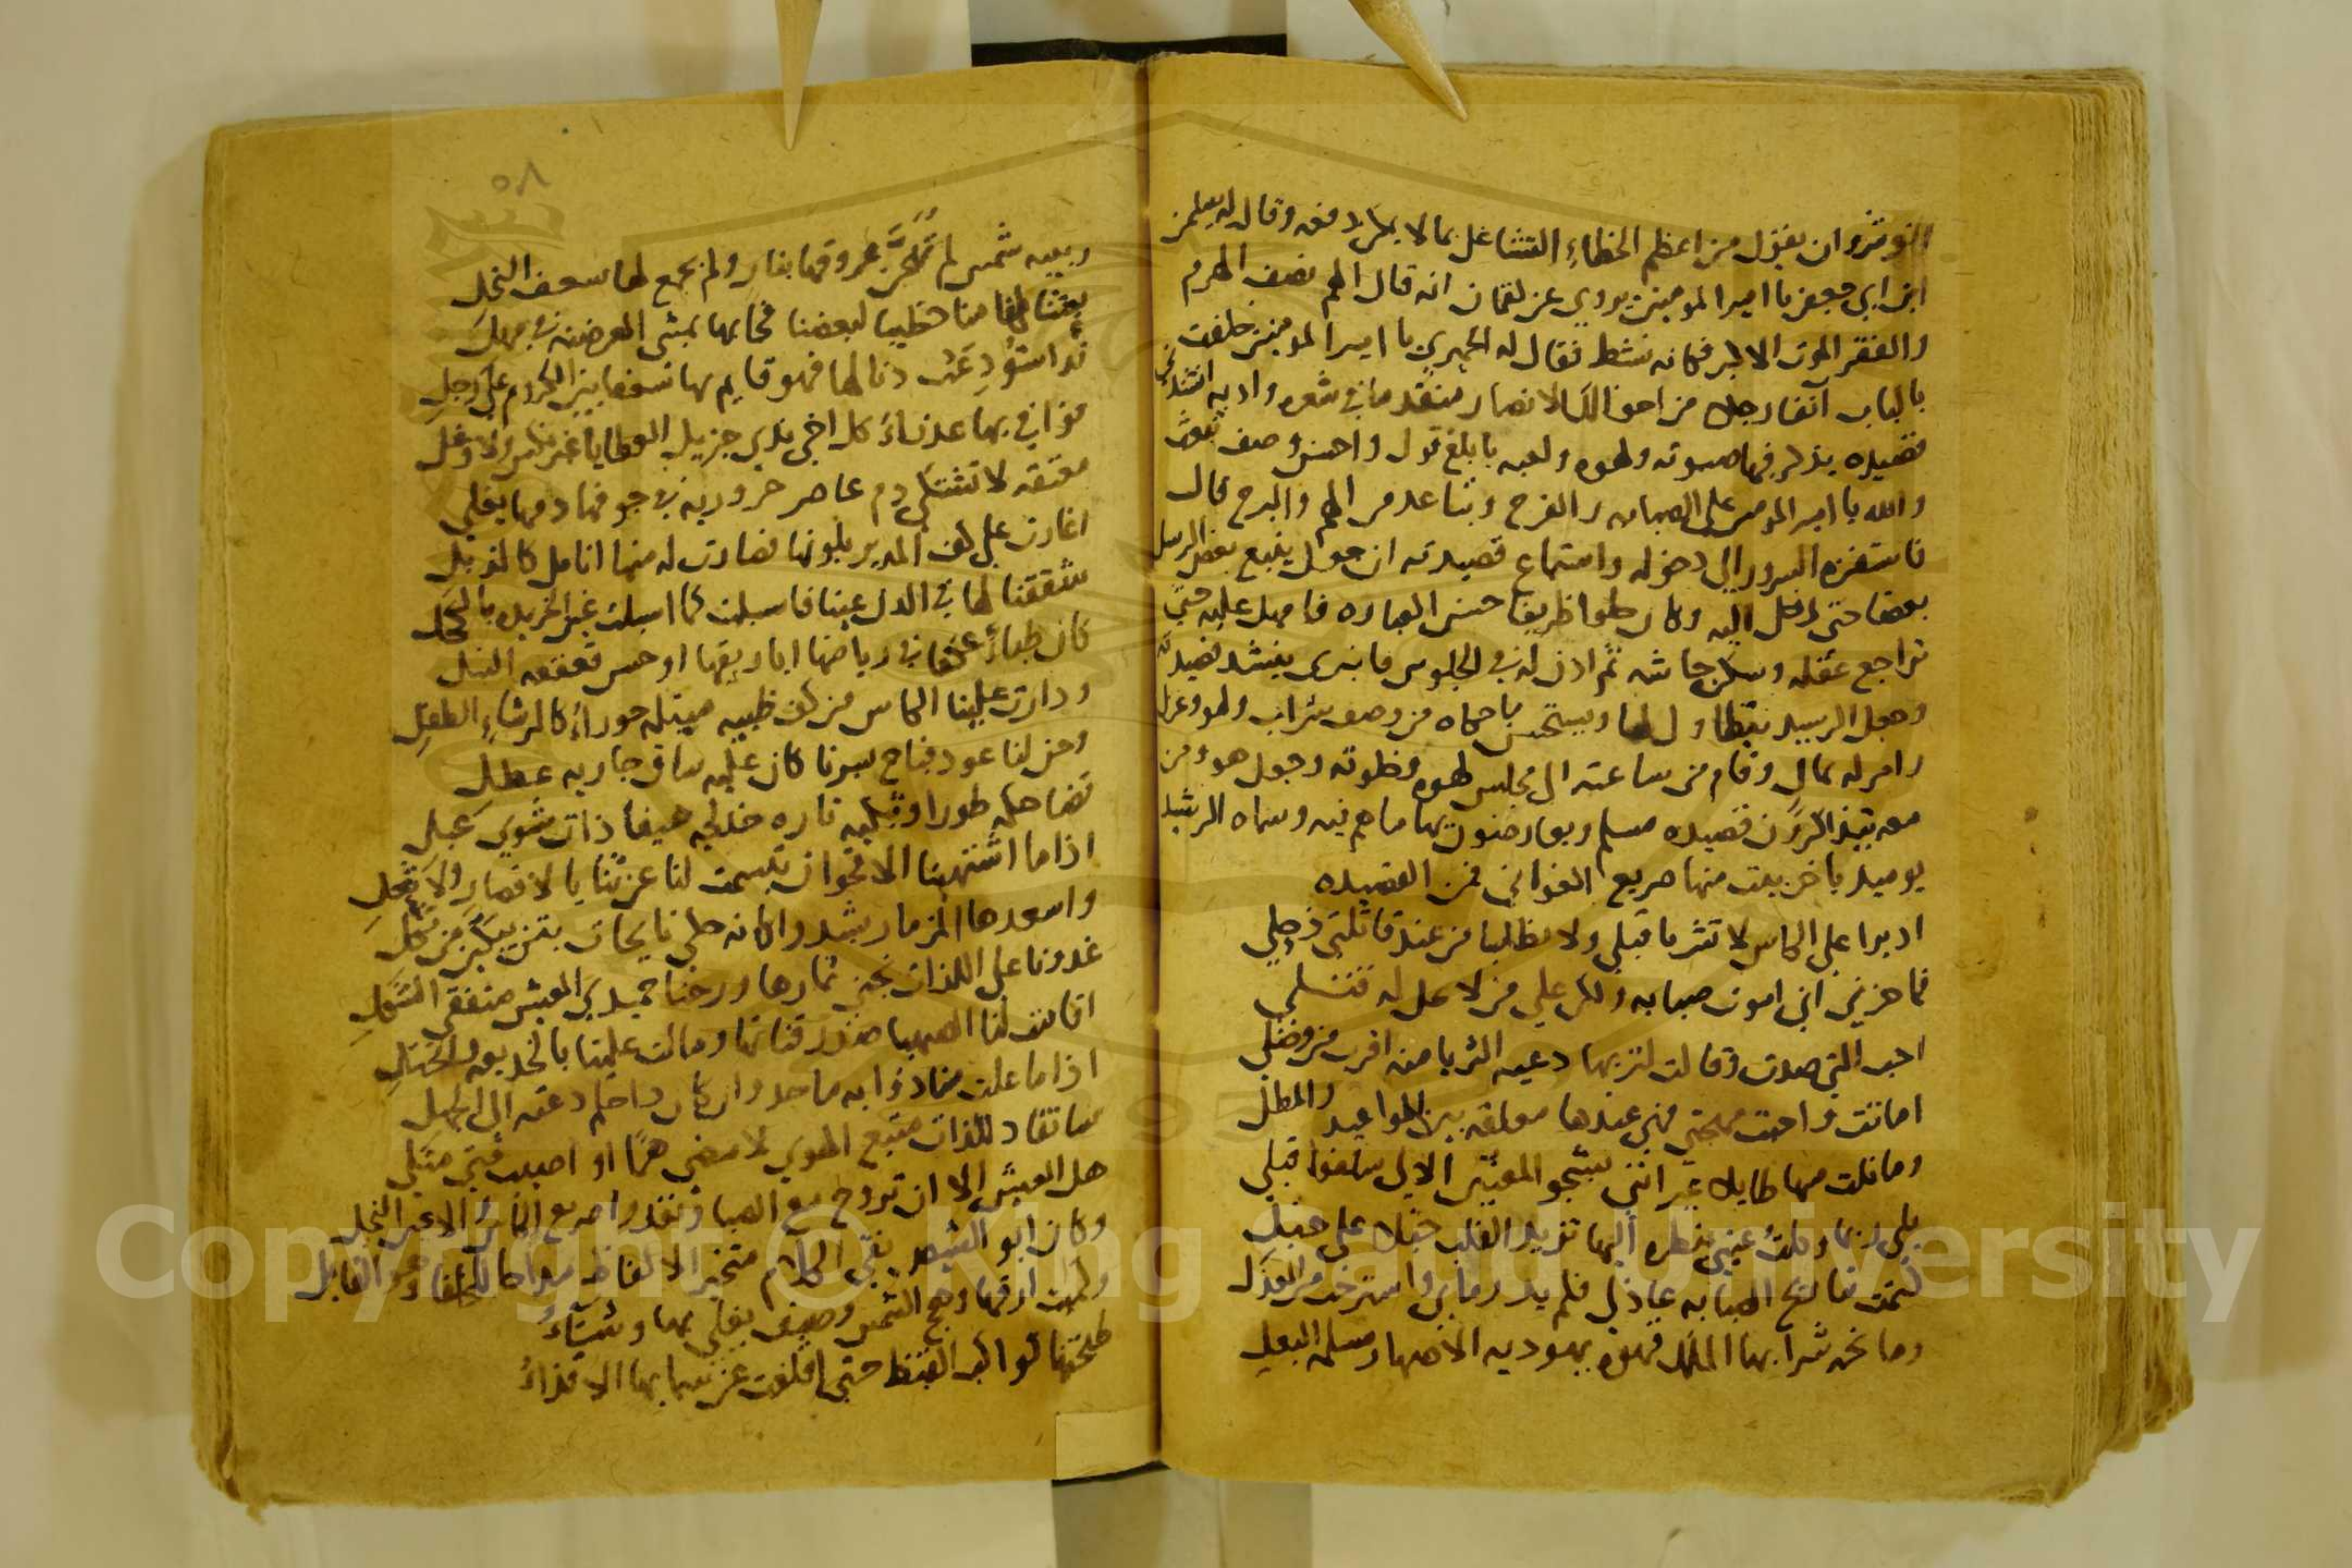 انوشروان يقول من اعظم الخطاء التشاغل بما لا يمكن دفعه وقال له سليمن
ابن ابي جعفر يا امير المومنين يروي عن لقمان انه قال الهم نصف الهرم
والفقر الموت الاكبر فكانه نشط فقال له الحميري يا امير المومنين خلفت
بالباب آنفا رجلا من اخوالك الانصار متقدما في شعره وادبه انشدني
قصيده يذكر فيها صبوته ولهوه ولعبه بابلغ قول واحسن وصف تبعث
والله يا امير المومنين على الصبابه والفرح وتباعد من الهم والبرح قال
فاستفزه السرور الى دخوله واستماع قصيدته ان جعل يتبع بعض الرسل
بعضا حتى ادخل اليه وكان حلوا ظريفا حسن العباره فامهل عليه حتى
تراجع عقله وسكن جاشه ثم اذن له في الجلوس فانبرى ينشد قصيدته
وجعل الرشيد يتطاول لها ويستحسن ما حكاه من وصف شراب ولهو وغزل
وامر له بمال وقام من ساعته الى مجلس لهوه وخلوته وجعل هو ومن
معه يتذاكرون قصيده مسلم ويعارضون بها ما هم فيه وسماه الرشيد
يوميد باخر بيت منها صريع الغواني فمن القصيده
اديرا على الكاس لا تشربا قبلي ولا تطلبا من عند قاتلتي ذحلي
فما حزني اني اموت صبابه ولكن على من لا يحل له قتلي
احب التي صدت وقالت لتربها دعيه الثريا منه اقرب من وصلي
اماتت واحيت مهجتي فهي عندها معلقه بين المواعيد والمطل
وما نلت منها طايلا غير انني بشجو المحبين الاولى سلفوا قبلي
بلى ربما وكلت عيني بنظره اليها تزيد القلب خبلا على خبل
كتمت تباريح الصبابه عاذلي فلم يدر ما بي واسترحت من العذل
ومانحه شرابها الملك قهوه يهوديه الاصهار مسلمه البعل
٥٨
ربيبه شمس لم تهجن عروقها بنار ولم يجمع لها سعف النخل
بعثنا لها منا خطيبا لبعضنا فجا بها يمشي العرضنه في مهل
قد استودعت دنا لها فهو قايم بها شعفا بين الكروم على رجل
فوافى بها عذراء كل اخي ندى جزيل العطايا غير نكس ولا وغل
معتقه لا تشتكي دم عاصر حروريه في جوفها دمها يغلي
اغارت على كف المدير بلونها فصارت له منها انامل كالذبل
شققنا لها في الدن عينا فاسبلت كما اسبلت عين الخريده بالكحل
كان ظباء عكفا في رياضها اباريقها اوجسن قعقعه النبل
ودارت علينا الكاس من كف ظبيه مبتله حوراء كالرشاء الطفل
وحن لنا عود فباح بسرنا كان عليه ساق جاريه عطل
تضاحكه طورا وتبكيه تاره خدلجه هيفا ذات شوى عبل
اذا ما اشتهينا الاقحوان تبسمت لنا عن ثنايا لا قصار ولا ثعل
واسعدها المزمار يشدو كانه حكى نايحات بتن يبكين من ثكل
غدونا على اللذات نجني ثمارها ورحنا حميدي العيش متفقي الشكل
اقامت لنا الصهبا صدور قناتها ومالت علينا بالخديعه والختل
اذا ما علت منا ذوابه ماجد وان كان ذا حلم دعته الى الجهل
سانقاد للذات متبع الهوى لامضي هما او اصيب فتى مثلي
هل العيش الا ان تروح مع الصبا وتغدو صريع الكاس والاعين النجل
وكان ابو الشيص نقي الكلام متخير الالفاظ مداحا للخلفا وهو القايل
وكميت ارقها وهج الشمس وصيف يغلي بها وشتاء
طبختها كواكب القيظ حتى اقلعت عن سمايها الاقذاء